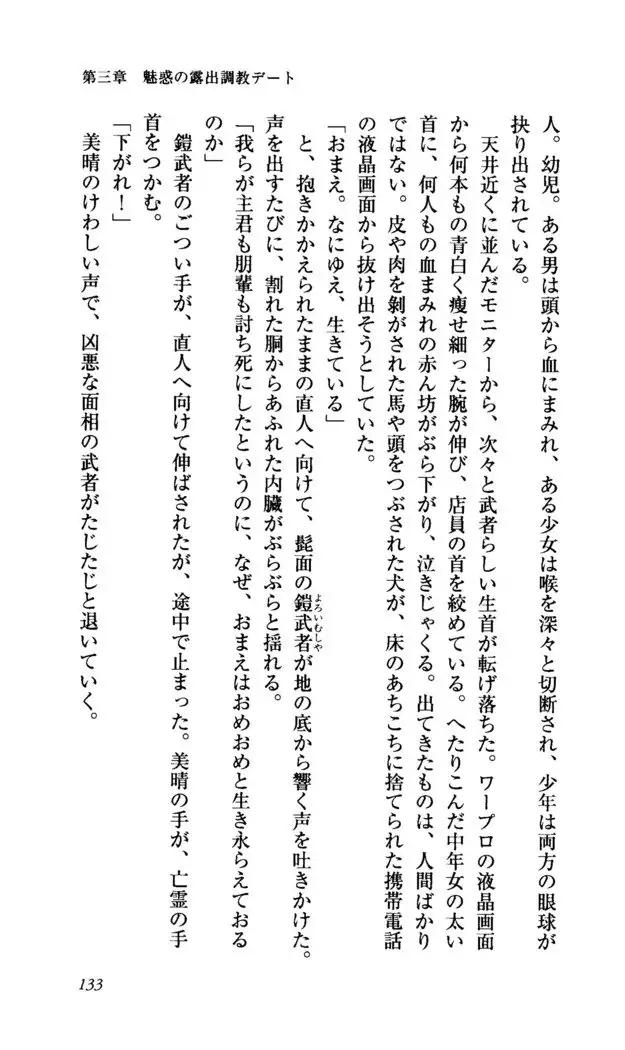 第三章　魅惑の露出調教デート
人。幼児。ある男は頭から血にまみれ、ある少女は喉を深々と切断され、少年は両方の眼球が
抉り出されている。
　天井近くに並んだモニターから、次々と武者らしい生首が転げ落ちた。ワープロの液晶画面
から何本もの青白く痩せ細った腕が伸び、店員の首を絞めている。へたりこんだ中年女の太い
首に、何人もの血まみれの赤ん坊がぶら下がり、泣きじゃくる。出てきたものは、人間ばかり
ではない。皮や肉を剝がされた馬や頭をつぶされた犬が、床のあちこちに捨てられた携帯電話
の液晶画面から抜け出そうとしていた。
「おまえ。なにゆえ、生きている」
　と、抱きかかえられたままの直人へ向けて、髭面の鎧武者が地の底から響く声を吐きかけた。
よろいむしゃ
声を出すたびに、割れた胴からあふれた内臓がぶらぶらと揺れる。
「我らが主君も朋輩も討ち死にしたというのに、なぜ、おまえはおめおめと生き永らえておる
のか」
　鎧武者のごつい手が、直人へ向けて伸ばされたが、途中で止まった。美晴の手が、亡霊の手
首をつかむ。
「下がれ！」
　美晴のけわしい声で、凶悪な面相の武者がたじたじと退いていく。
133